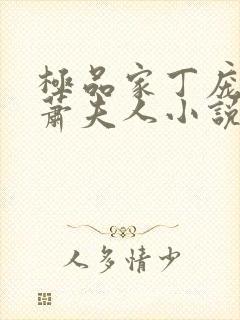 極品家丁庞
蕭夫人小説
人多情少